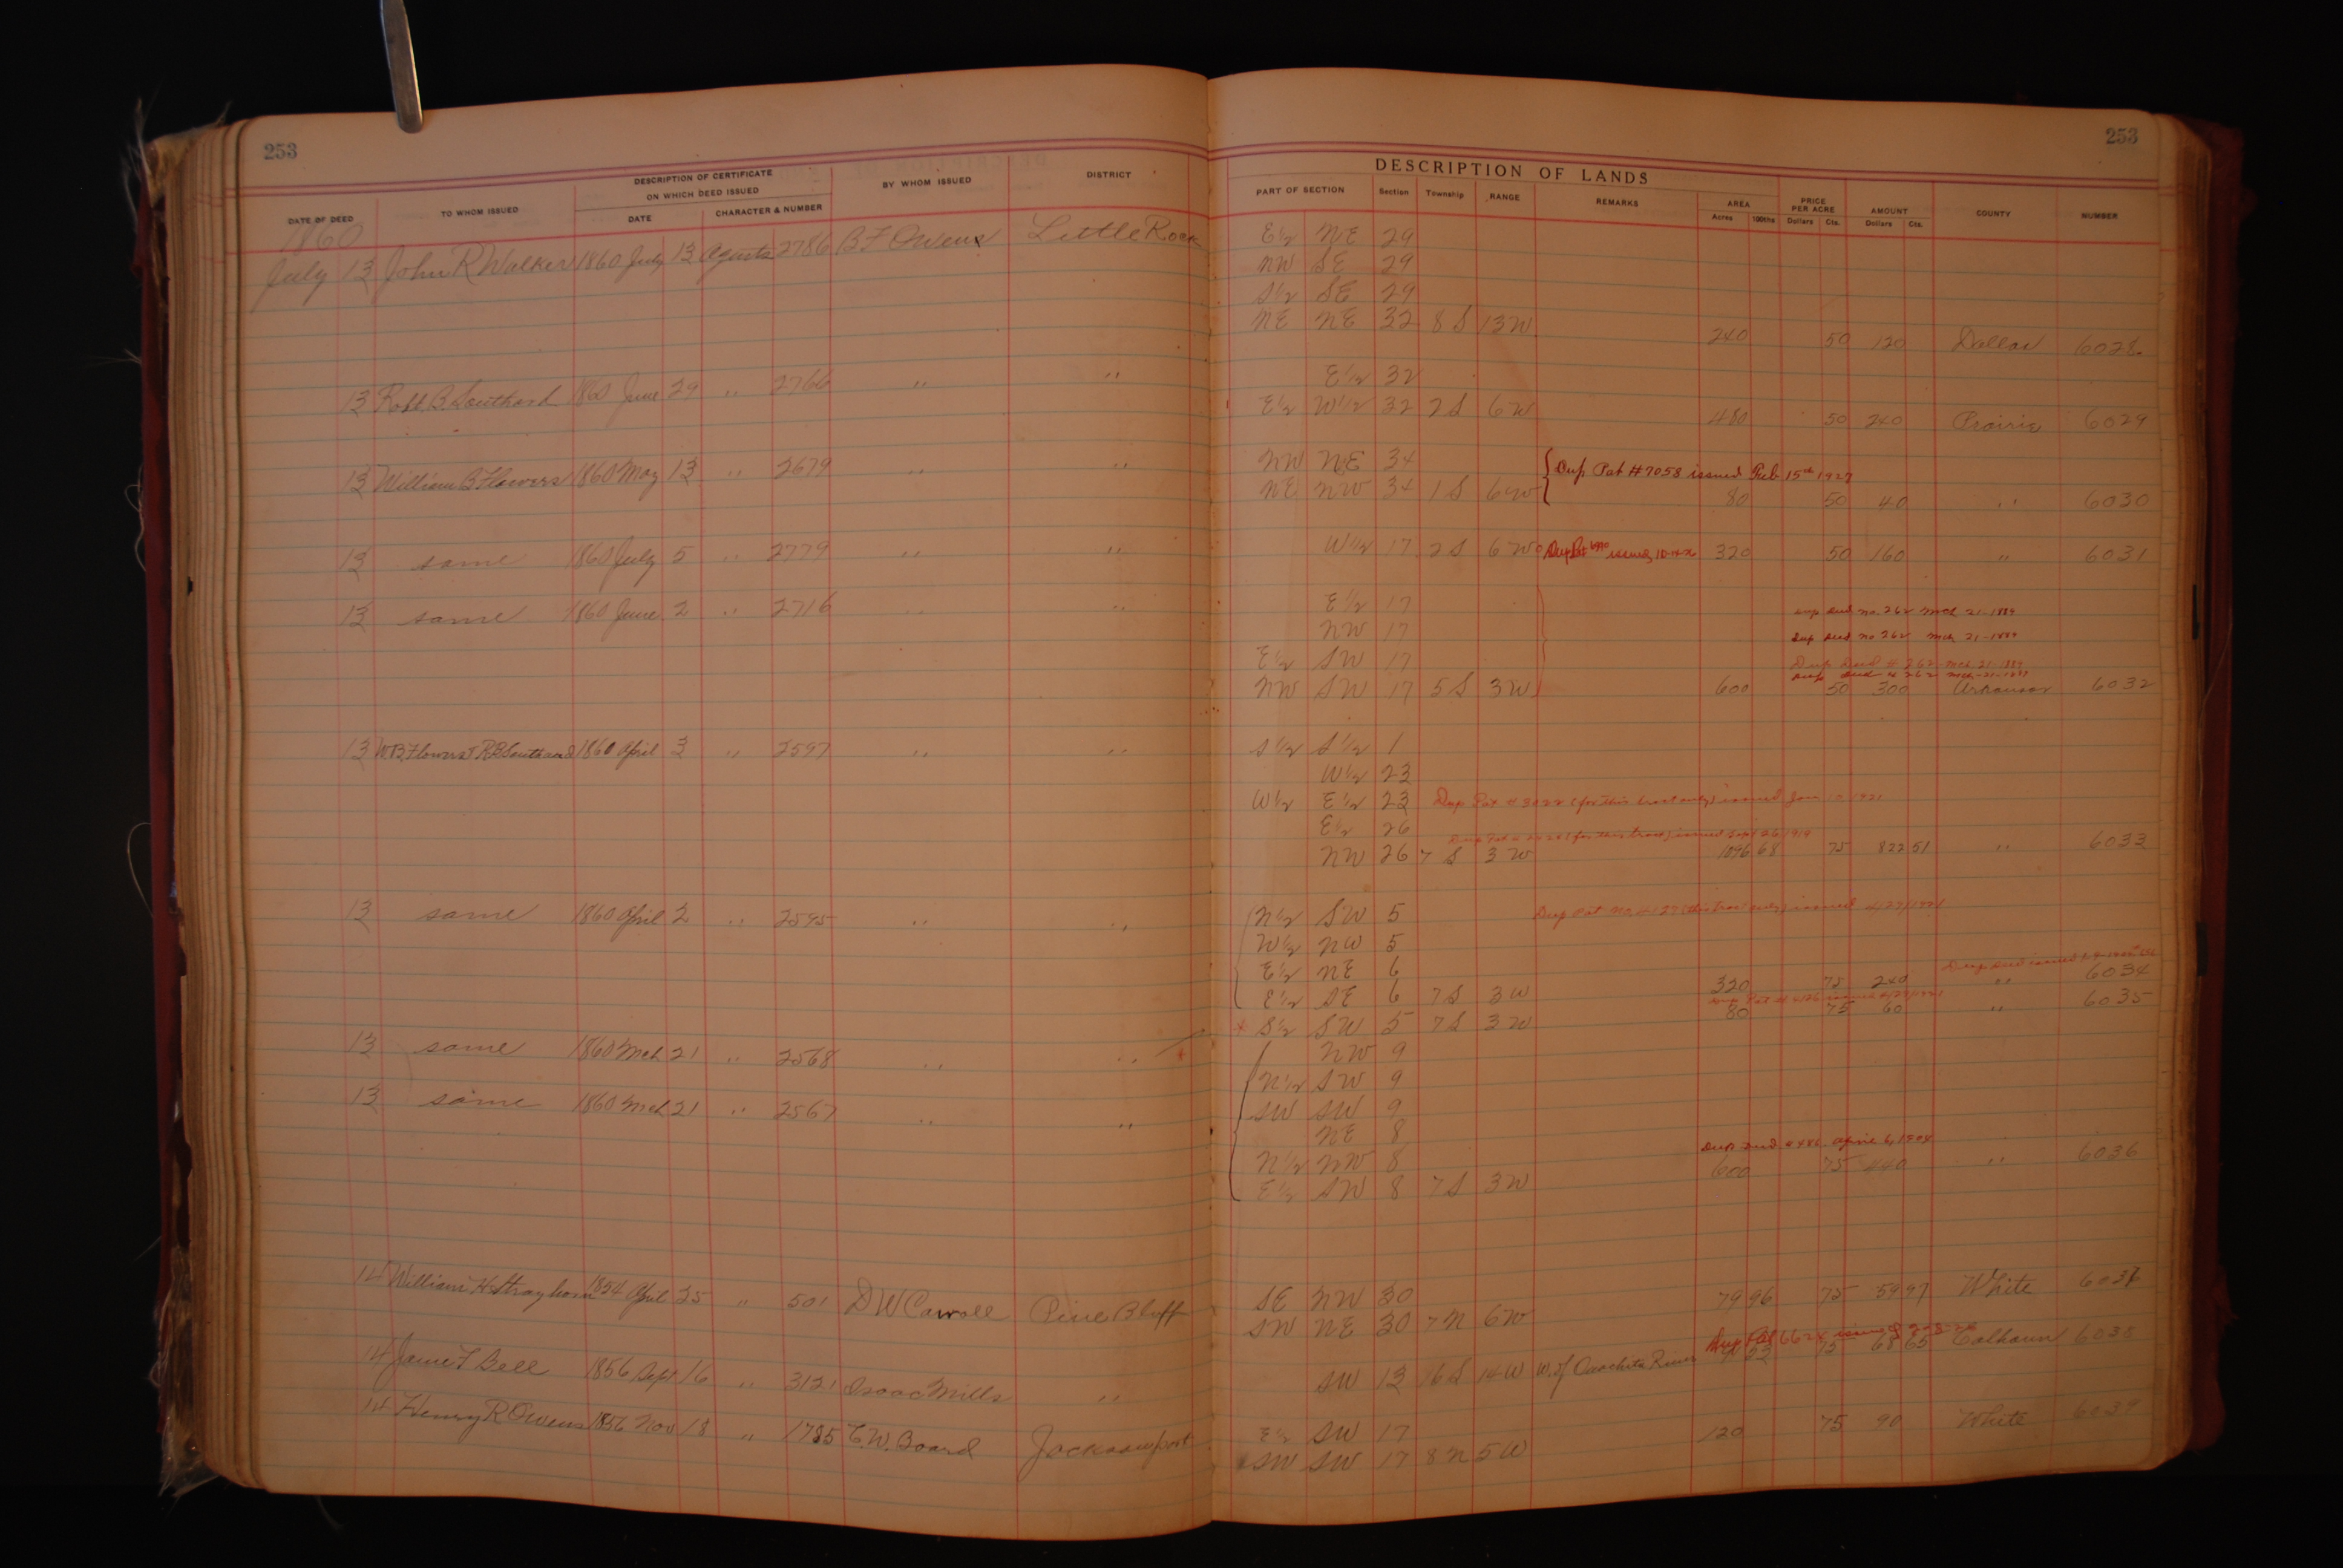 253
DESCRIPTION OF CERTIFICATE
ON WHICH DEED ISSUED
DATE OF DEED TO WHOM ISSUED DATE CHARACTER & NUMBER BY WHOM ISSUED DISTRICT
1860
July 13 John R Walker 1860 July 13 Agents 2786 B F Owens Little Rock
13 Robt. B. Southard 1860 June 29 " 2766 " "
13 William B Flowers 1860 May 13 " 2679 " "
13 same 1860 July 5 " 2779 " "
13 same 1860 June 2 " 2716 " "
13 W.B. Flowers & R B Southard 1860 April 3 " 2597 " "
13 same 1860 April 2 " 2595 " "
13 same 1860 Mch 21 " 2568 " "
13 same 1860 Mch 21 " 2567 " "
14 William H Strayhorn 1854 April 25 " 501 D W Carroll Pine Bluff
14 James F Bell 1856 Sept 16 " 3121 Isaac Mills "
14 Henry R Owens 1856 Nov 18 " 1785 C. W. Board Jacksonport
253
DESCRIPTION OF LANDS
PART OF SECTION Section Township RANGE REMARKS AREA PRICE PER ACRE AMOUNT COUNTY NUMBER
Acres 100ths Dollars Cts. Dollars Cts.
E½ NE 29
NW SE 29
S½ SE 29
NE NE 32 8 S 13 W 240 50 120 Dallas 6028
E½ 32
E½ W½ 32 2 S 6 W 480 50 240 Prairie 6029
NW NE 34 Dup Pat #7058 issued Feb 15th 1927
NE NW 34 1 S 6 W 80 50 40 " 6030
W½ 17 2 S 6 W Dup Pat issued 320 50 160 " 6031
E½ 17 Dup Deed no. 262 Mch 21-1884
NW 17 Dup Deed no 262 Mch 21-1884
E½ SW 17 Dup Deed # 262 Mch 21-1884
Dup Deed # 262 Mch-21-1884
NW SW 17 5 S 3 W 600 50 300 Arkansas 6032
S½ S½ 1
W½ 23
W½ E½ 23 Dup Pat # (for this tract only) issued Jan
E½ 26
Dup Pat (for this tract) issued Sept 26 1919
NW 26 7 S 3 W 1096 68 75 822 51 " 6033
N½ SW 5 Dup Pat No. (this tract only) issued
W½ NW 5
E½ NE 6 Dup Deed issued
E½ SE 6 7 S 3 W 320 75 240 " 6034
Dup Pat # issued
* S½ SW 5 7 S 3 W 80 75 60 " 6035
NW 9
N½ SW 9
SW SW 9
NE 8
N½ NW 8 Dup Deed # 486 April 6, 1904
E½ SW 8 7 S 3 W 600 75 440 " 6036
SE NW 30
SW NE 30 7 N 6 W 79 96 75 59 97 White 6037
Dup Pat issued
SW 13 16 S 14 W W. of Ouachita River 75 68 65 Calhoun 6038
E½ SW 17
SW SW 17 8 N 5 W 120 75 90 White 6039